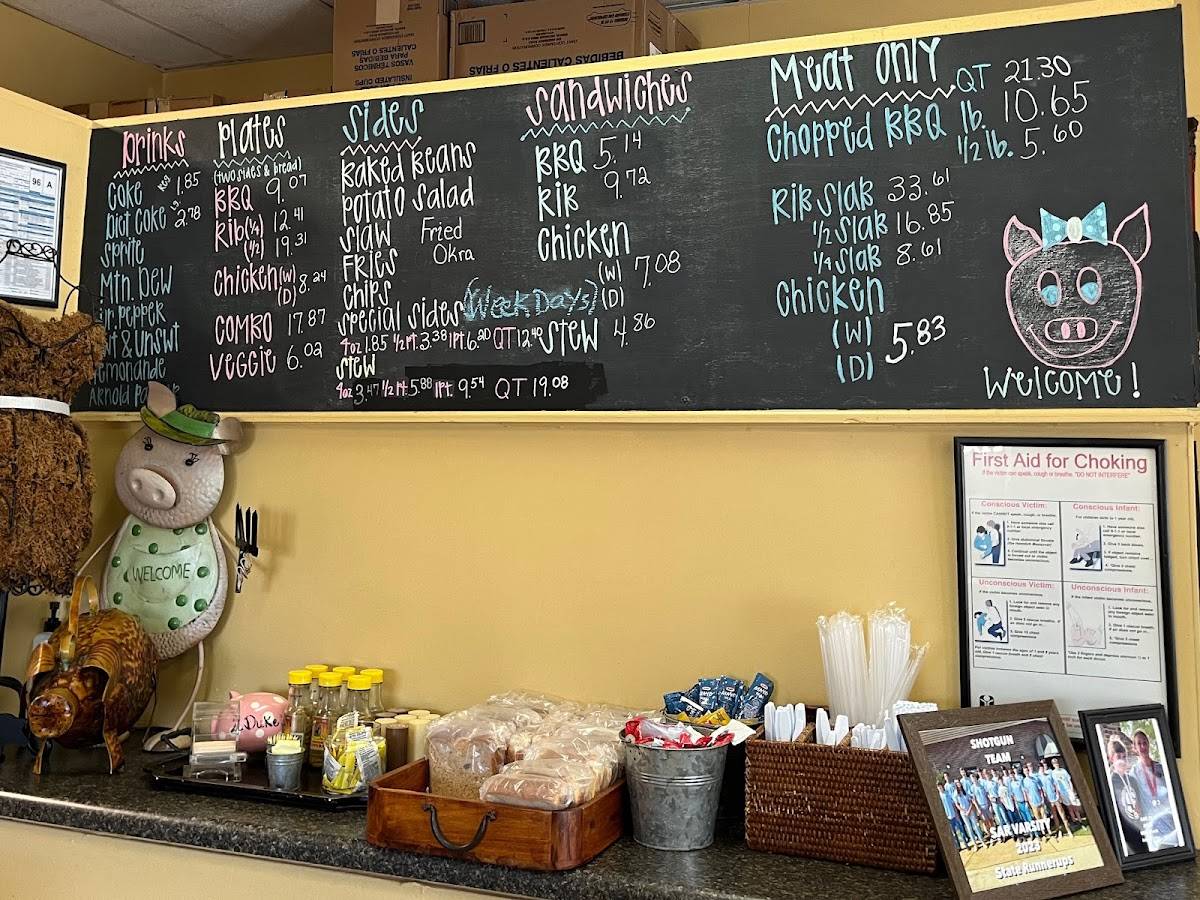 VASOS TÉRMICOS
PARA BEBIDAS
CALIENTES O FRIAS
INSULATED CUPS
BEBIDAS CALIENTES O FRIAS
96 A
Drinks
Coke Reg 1.85
Diet Coke 2.78
Sprite
Mtn. Dew
Dr. Pepper
wt & Unswt
Lemonade
Plates
(two sides & bread)
BBQ 9.07
Rib (1/4) 12.41
(1/2) 19.31
Chicken (W) 8.24
(D)
Combo 17.87
Veggie 6.02
Sides
Baked Beans
Potato Salad
Slaw Fried
Fries Okra
Chips
Special Sides (WeekDays)
4oz 1.85 1/2 Pt. 3.38 1 Pt. 6.20 QT 12.40
Stew
4oz 3.47 1/2 Pt. 5.88 1 Pt. 9.54 QT 19.08
Sandwiches
BBQ 5.14
Rib 9.72
Chicken
(W) 7.08
(D)
Stew 4.86
Meat Only
QT 21.30
Chopped BBQ lb. 10.65
1/2 lb. 5.60
Rib Slab 33.61
1/2 Slab 16.85
1/4 Slab 8.61
Chicken
(W) 5.83
(D)
Welcome!
WELCOME
Duke
First Aid for Choking
If the victim can speak, cough or breathe, "DO NOT INTERFERE"
Conscious Victim:
Conscious Infant:
Unconscious Victim:
Unconscious Infant:
SHOTGUN
TEAM
SAR VARSITY
2023
State Runnerups